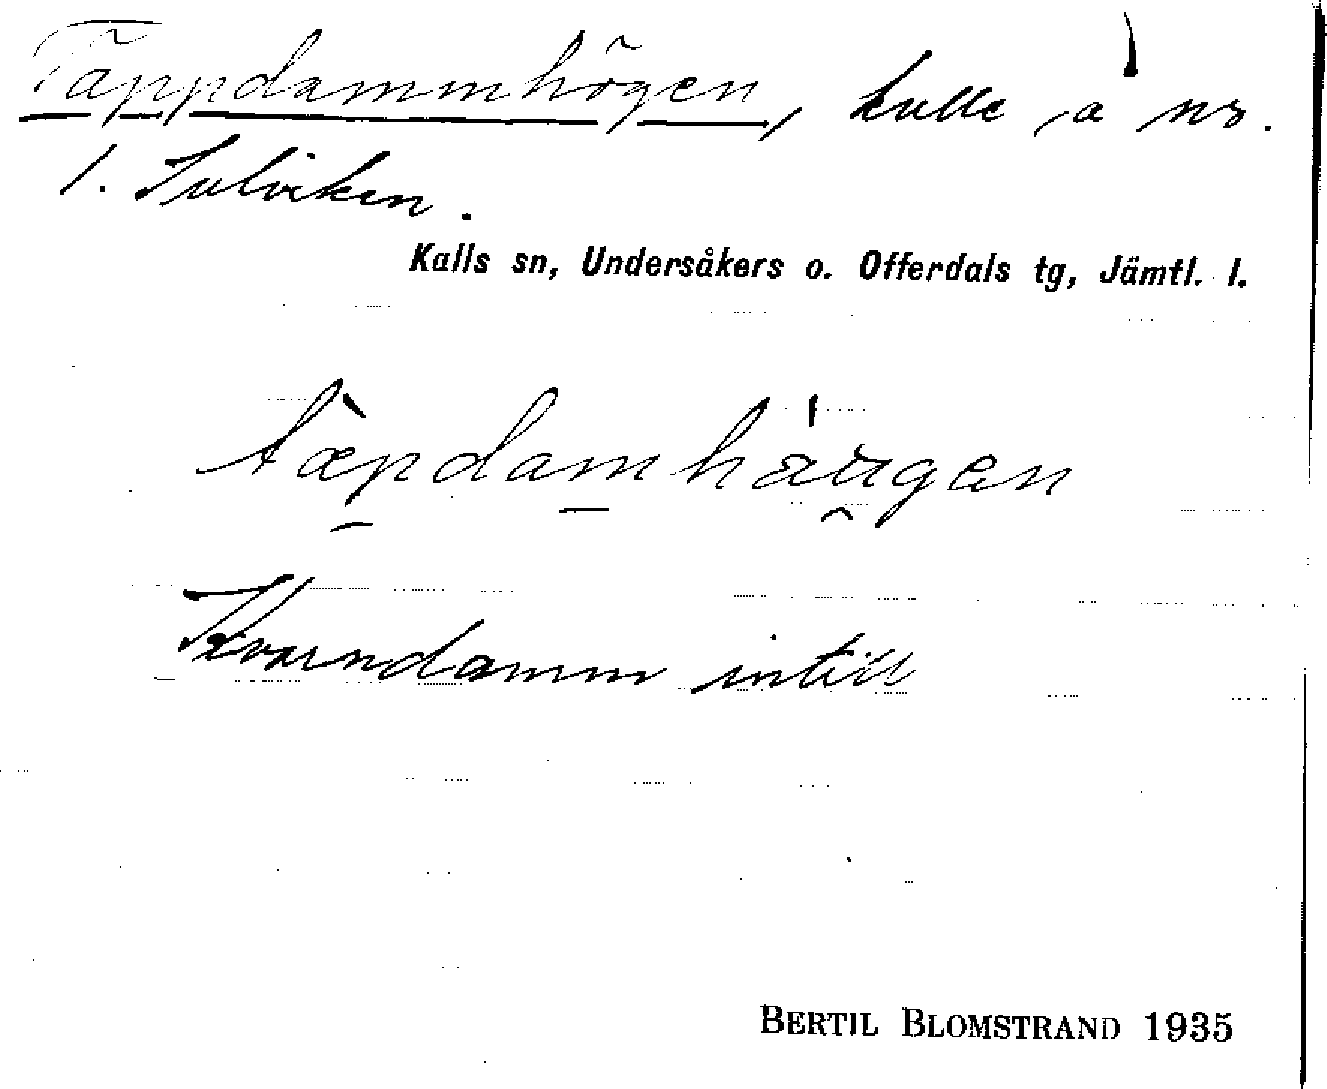 Täppdammhögen, kulle, å nr.
1. Sulviken.
Kalls sn, Undersåkers o. Offerdals tg, Jämtl. l.
tæ̀pdamhäugen
Kvarndamm intill
BERTIL BLOMSTRAND 1935